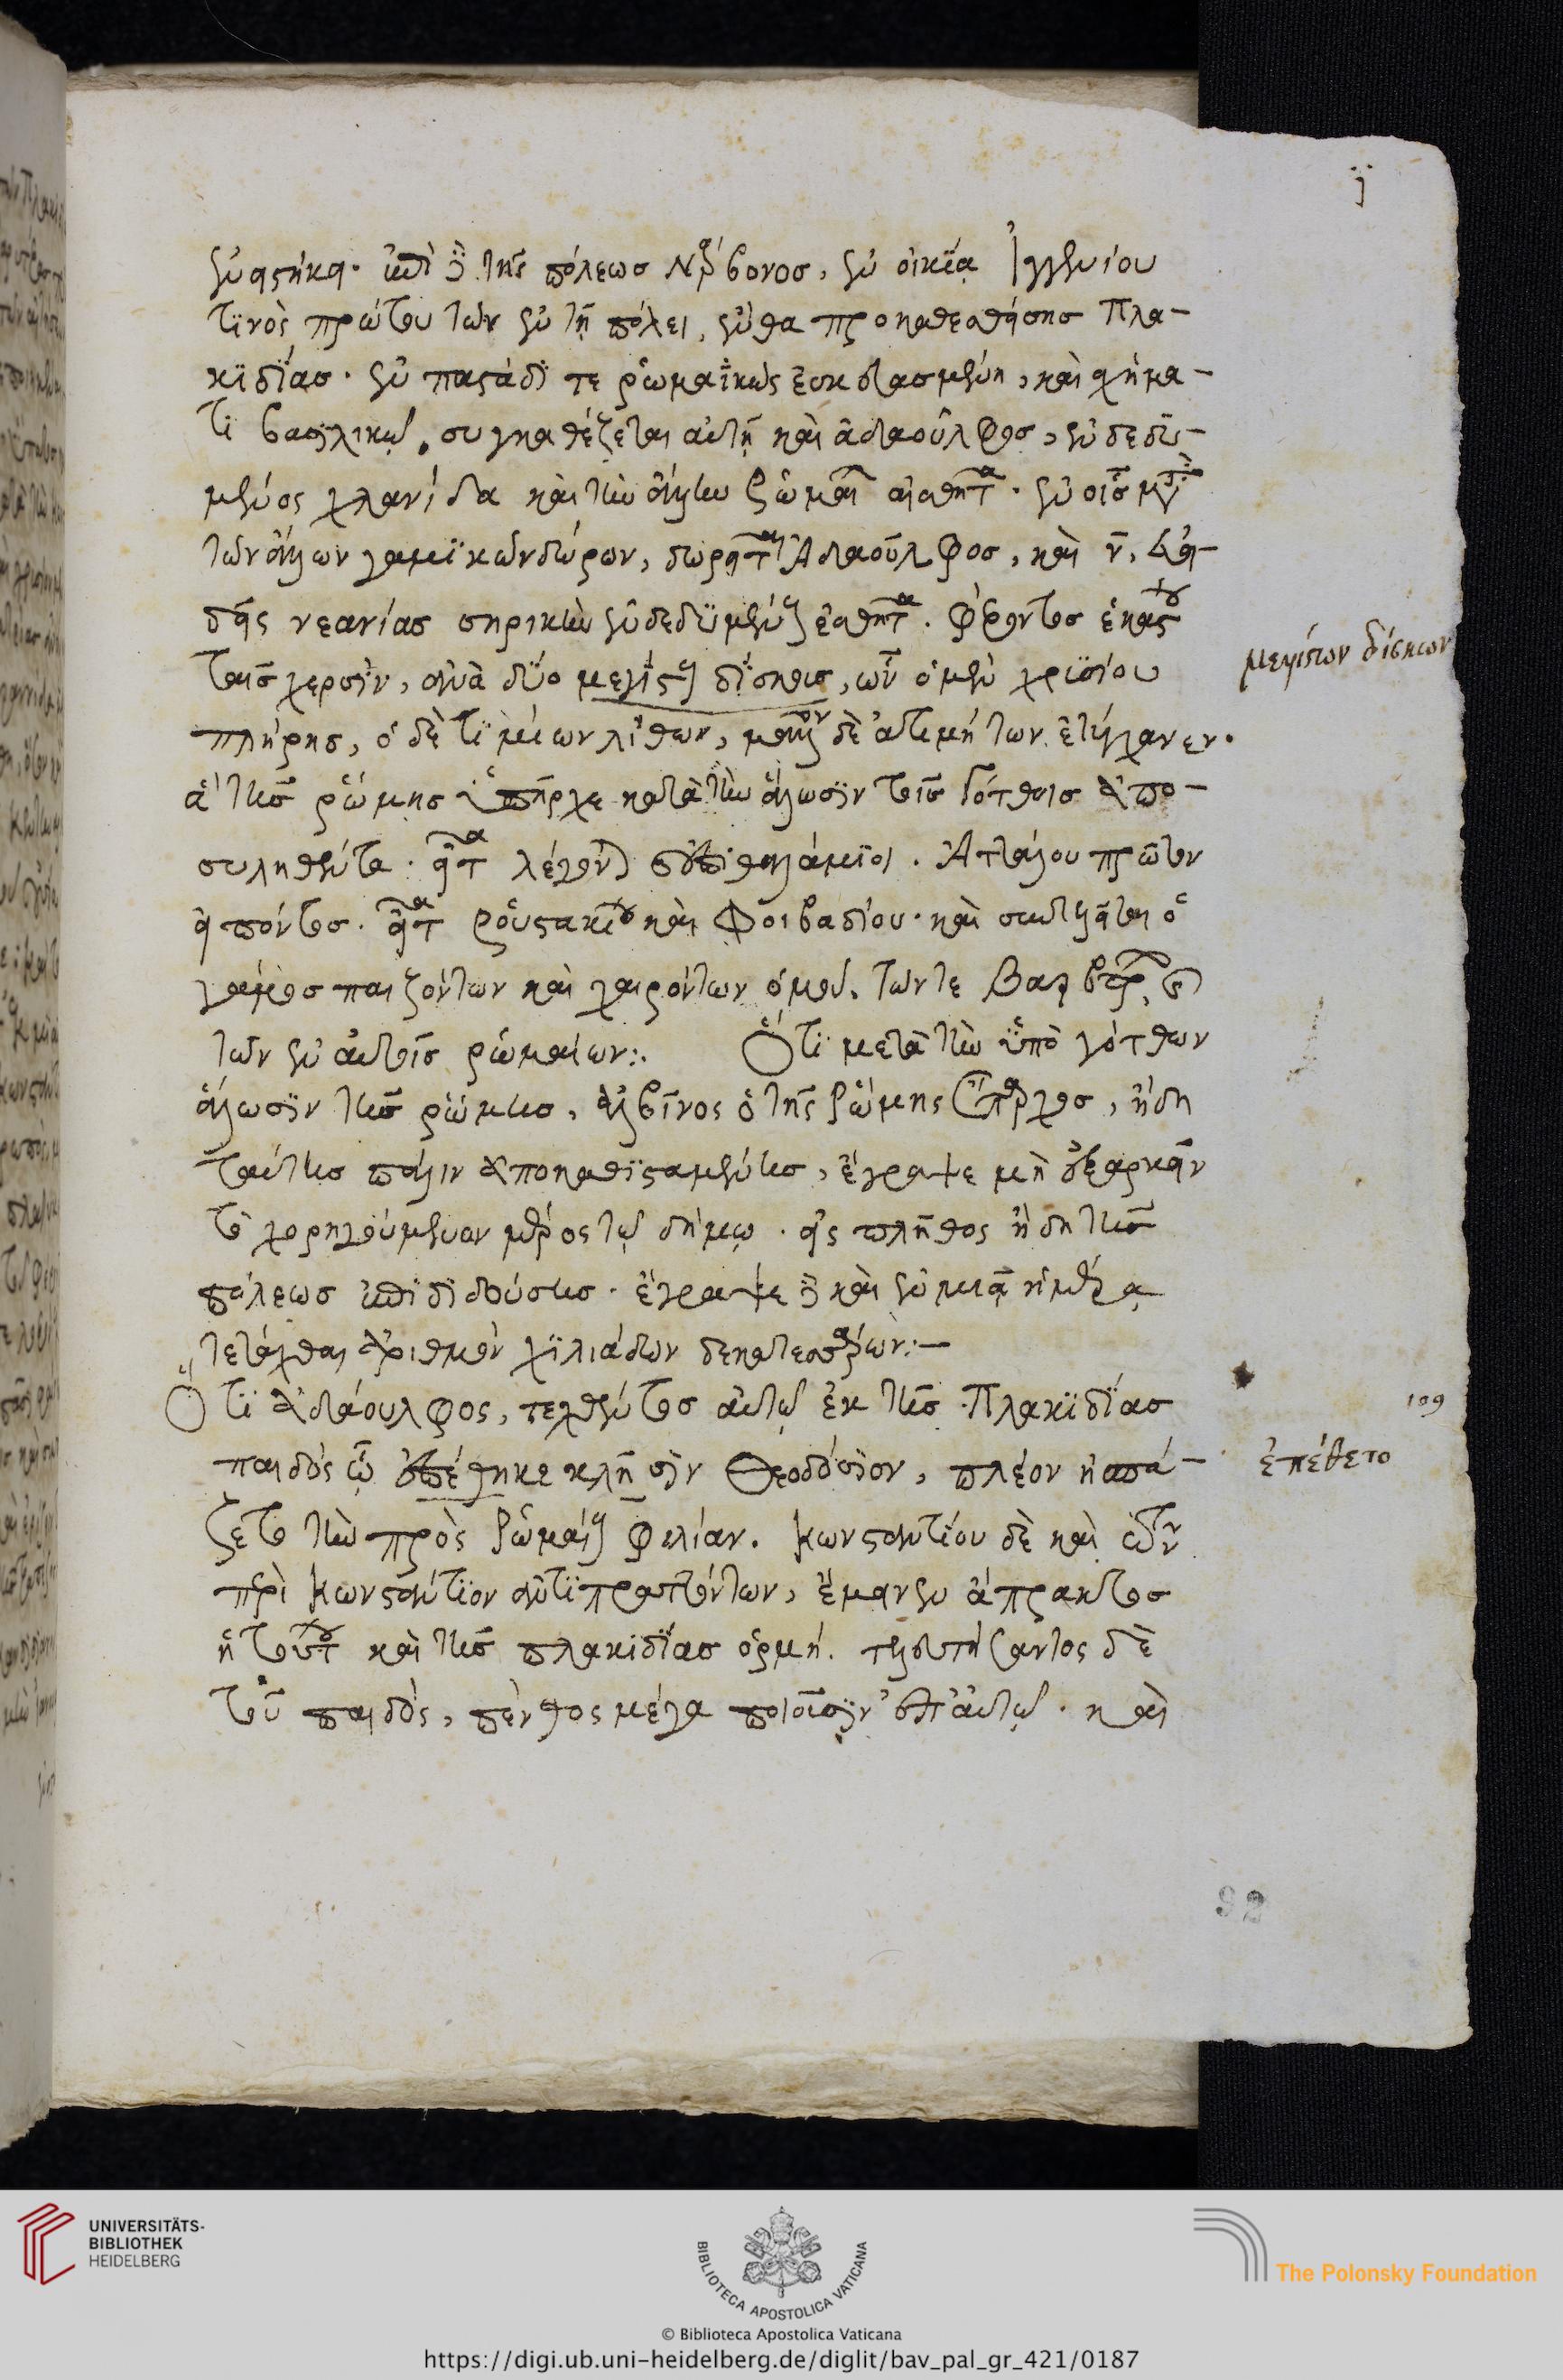 ἐνειστήκει· ἐπὶ δὲ τῆς πόλεως Νάρβονος, ἐν οἰκίᾳ Ἰγγενίου
τινὸς πρώτου τῶν ἐν τῇ πόλει, ἔνθα προκαθεσθείσης Πλα-
κιδίας· ἐν παστάδι τε ῥωμαϊκῶς ἐσκευασμένῃ, καὶ σχήμα-
τι βασιλικῷ, συγκαθέζεται αὐτῇ καὶ ἀδαοῦλφος, ἐνδεδυ-
μένος χλανίδα καὶ τὴν ἄλλην ῥωμαίων ἐσθῆτα· ἐν οἷς μετὰ
τῶν ἄλλων γαμικῶν δώρων, δωρεῖται Ἀδαοῦλφος, καὶ ν, εὐει-
δεῖς νεανίας σηρικὴν ἐνδεδυμένους ἐσθῆτα· φέροντος ἑκάστου
ταῖς χερσὶν, ἀνὰ δύο μεγίστους δίσκους, ὧν ὁ μὲν χρυσίου
πλήρης, ὁ δὲ τιμίων λίθων, μᾶλλον δὲ ἀτιμήτων ἐτύγχανεν·
ἃ τῆς ῥώμης ὑπῆρχε κατὰ τὴν ἅλωσιν τοῖς Γότθοις ἀπο-
συληθέντα· εἶτα λέγονται ἐπιθαλάμιοι· Ἀττάλου πρῶτον
εἰπόντος· εἶτα Ῥουστικίου καὶ Φοιβαδίου· καὶ συντελεῖται ὁ
γάμος παιζόντων καὶ χαιρόντων ὁμοῦ, τῶν τε βαρβάρων καὶ
τῶν ἐν αὐτοῖς ῥωμαίων:. Ὅτι μετὰ τὴν ὑπὸ γότθων
ἅλωσιν τῆς ῥώμης, ἀλβῖνος ὁ τῆς ῥώμης ἔπαρχος, ἤδη
ταύτης πάλιν ἀποκαθισταμένης, ἔγραψε μὴ ἐξαρκεῖν
τὸ χορηγούμενον μέρος τῷ δήμῳ· εἰς πλῆθος ἤδη τῆς
πόλεως ἐπιδιδούσης· ἔγραψε δὲ καὶ ἐν μιᾷ ἡμέρᾳ
τετάχθαι ἀριθμὸν χιλιάδων δεκατεσσάρων:—
Ὅτι ἀδάουλφος, τεχθέντος αὐτῷ ἐκ τῆς Πλακιδίας
παιδὸς ᾧ ἐπέθηκε κλῆσιν Θεοδόσιον, πλέον ἠσπά-
ζετο τὴν πρὸς ῥωμαίους φιλίαν. Κωνσταντίου δὲ καὶ τῶν
περὶ Κωνστάντιον ἀντιπραττόντων, ἔμεινεν ἄπρακτος
ἡ τούτου καὶ τῆς πλακιδίας ὁρμή. τελευτήσαντος δὲ
τοῦ παιδὸς, πένθος μέγα ποιοῦσιν ἐπ' αὐτῷ· καὶ
μεγίστων δίσκων
109
ἐπέθετο
92
UNIVERSITÄTS-
BIBLIOTHEK
HEIDELBERG
BIBLIOTECA APOSTOLICA VATICANA
The Polonsky Foundation
© Biblioteca Apostolica Vaticana
https://digi.ub.uni-heidelberg.de/diglit/bav_pal_gr_421/0187